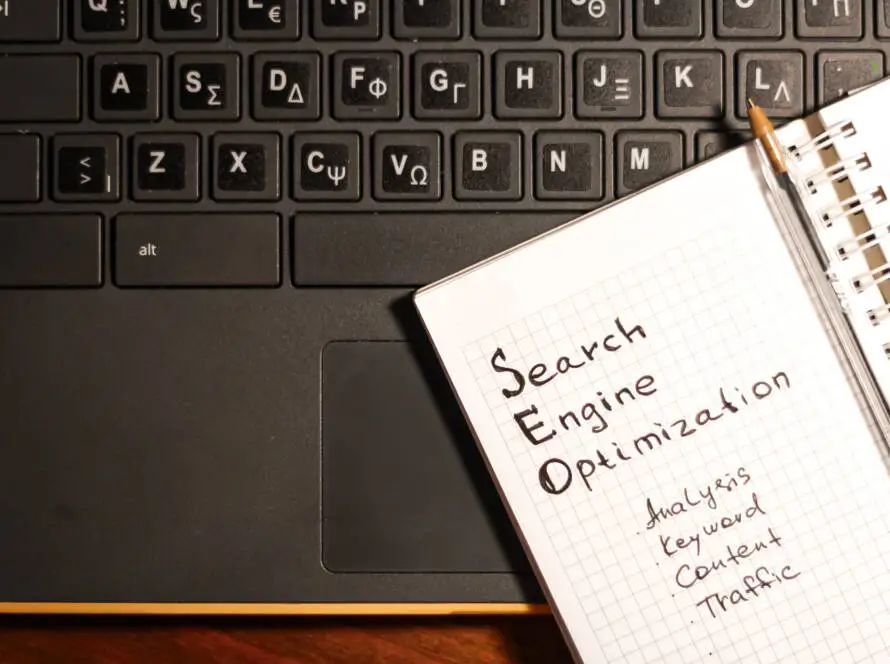 Q W ς E €
A S Σ D Δ F Φ G Γ H J Ξ K L Λ
< > | Z X C Ψ V Ω B N M
alt
Search
Engine
Optimization
. Analysis
. Keyword
. Content
. Traffic